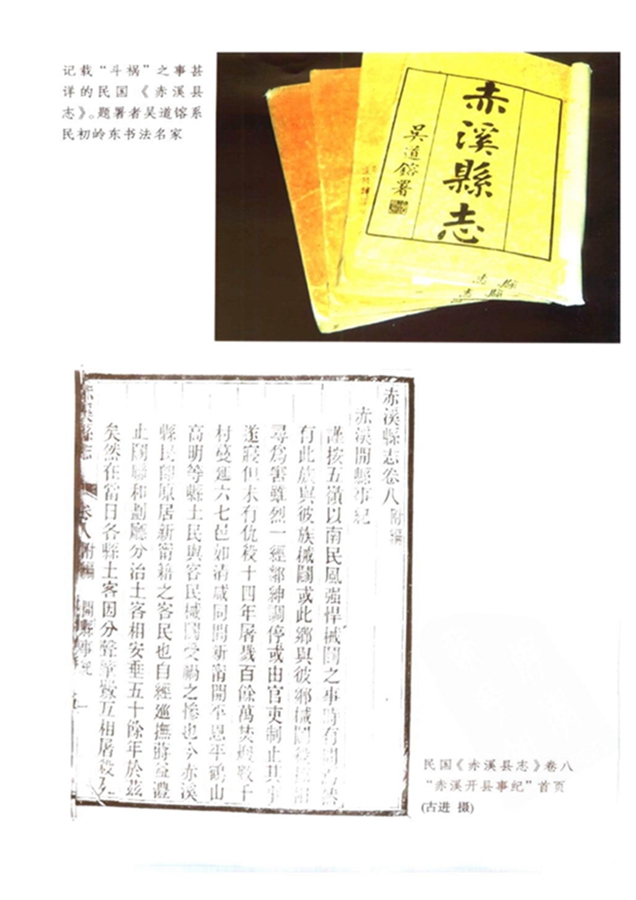 记载“斗祸”之事甚
详的民国《赤溪县
志》。题署者吴道镕系
民初岭东书法名家
赤溪縣志
吴道鎔署
赤溪縣志卷八 附編
赤溪開縣事紀
謹按五嶺以南民風强悍械鬭之事時有
有此族與彼族械鬭或此鄉與彼鄉械鬭
尋爲害雖烈一經鄰紳調停或由官吏制止其
遂寢但未有仇殺十四年屠戮百餘萬焚燬數千
村蔓延六七邑如清咸同間新甯開平恩平鶴山
高明等縣土民與客民械鬭受禍之慘也今赤溪
縣民卽原居新甯籍之客民也自經巡撫蔣益澧
止鬭聯和劃廳分治土客相安垂五十餘年於茲
矣然在當日各縣土客因分聲 互相屠殺
赤溪縣志 卷八附編 開縣事紀 一
民国《赤溪县志》卷八
“赤溪开县事纪”首页
(古进 摄)